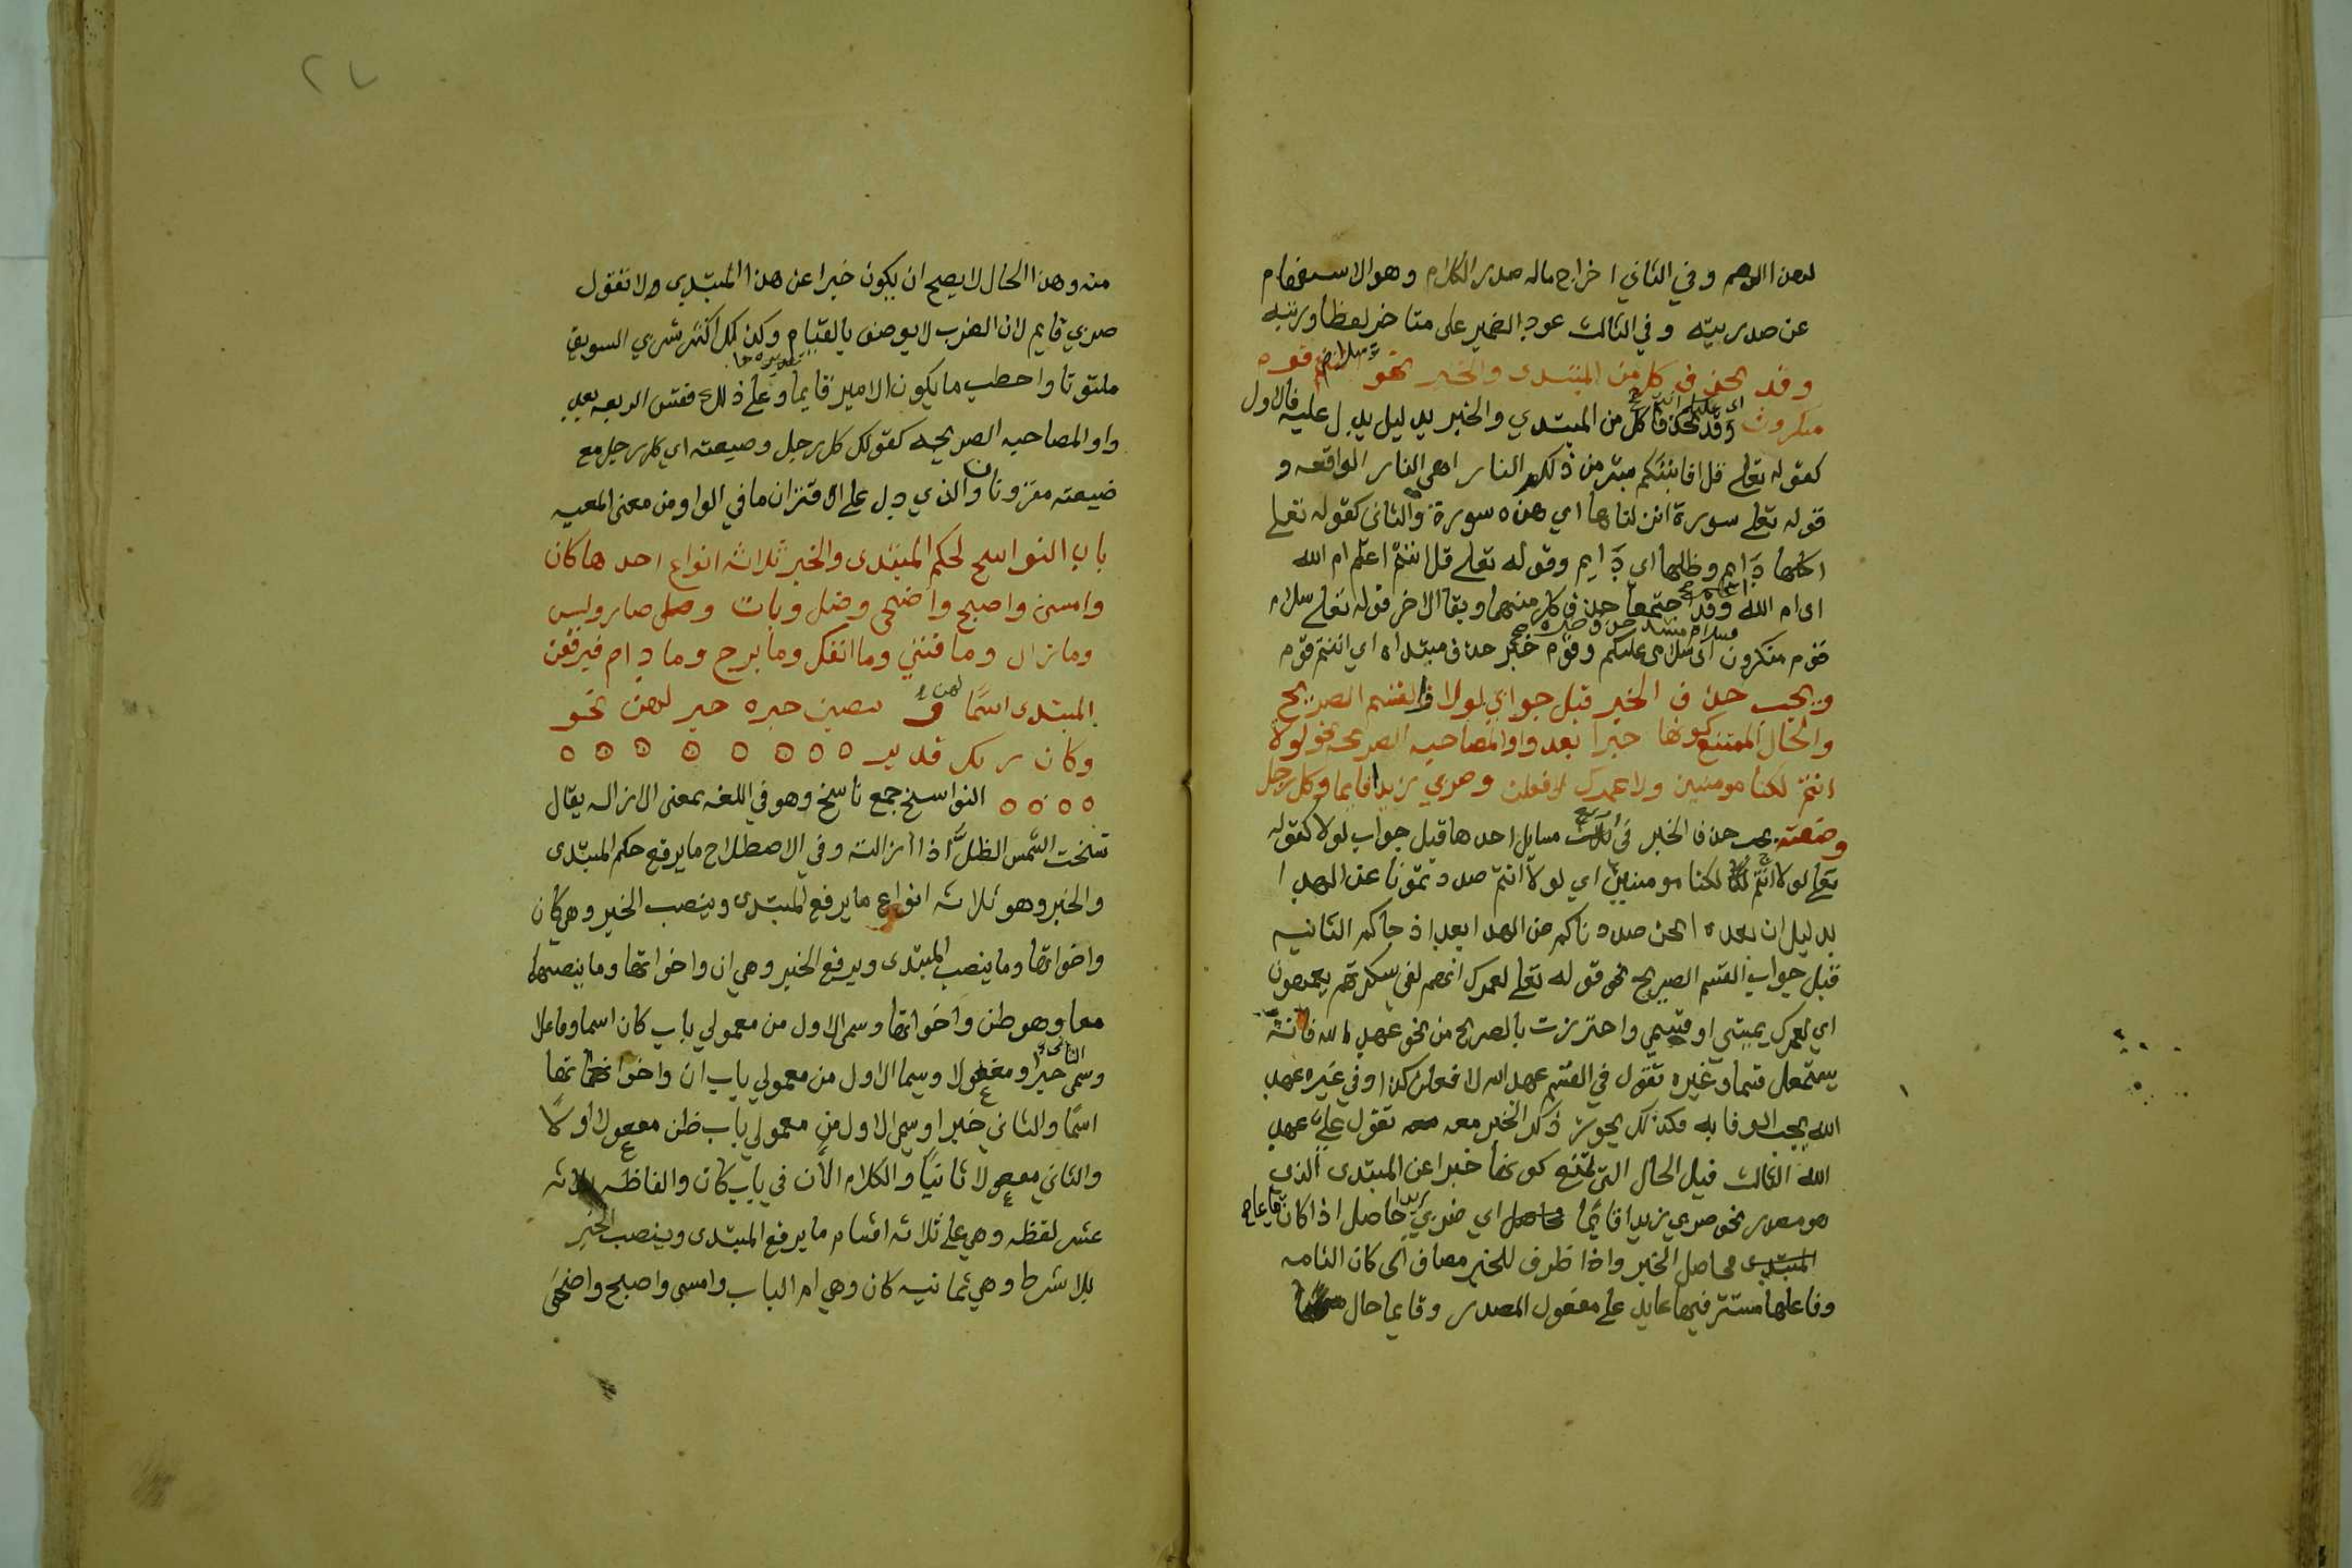 لهذا الوهم وفي الثاني اخراج ماله صدر الكلام وهو الاستفهام
عن صدريته وفي الثالث عود الضمير على متاخر لفظا ورتبه
وقد يحذف كل من المبتدى والخبر نحو سلام قوم
منكرون وقد يحذف كل من المبتدي والخبر بدليل يدل عليه فالاول
كقوله تعلى قل افانبئكم بشر من ذلكم النار اي هي النار الواقعه و
قوله تعلى سورة انزلناها اي هذه سورة والثاني كقوله تعلى
اكلها دايم وظلها اي دايم وقوله تعلى قل اانتم اعلم ام الله
اي ام الله اعلم وقد اجتمعا حذف كل منهما وبقا الاخر قوله تعلى سلام
قوم منكرون اي سلام عليكم وقوم خبر حذف مبتداه اي انتم قوم
ويجب حذف الخبر قبل جوابي لولا والقسم الصريح
والحال الممتنع كونها خبرا بعد واو المصاحبه الصريحه نحو لولا
انتم لكنا مومنين ولعمرك لافعلن وضربي زيدا قايما وكل رجل
وضيعته يجب حذف الخبر في اربع مسايل احدها قبل جواب لولا كقوله
تعلى لولا انتم لكنا مومنين اي لولا انتم صددتمونا عن الهدا
بدليل ان بعده انحن صددناكم عن الهدا بعد اذ جاكم الثانيه
قبل جواب القسم الصريح نحو قوله تعلى لعمرك انهم لفي سكرتهم يعمهون
اي لعمرك يميني او قسمي واحترزت بالصريح من نحو عهد الله فانه
يستعمل قسما وغيره تقول في القسم عهد الله لافعلن كذا وفي غيره عهد
الله يجب الوفا به فكذلك يجوز ذكر الخبر معه تقول علي عهد
الله الثالث قبل الحال التي يمتنع كونها خبرا عن المبتدى الذي
هو مصدر نحو ضربي زيدا قايما اي ضربي زيدا حاصل اذا كان قايما
المبتدى فحاصل الخبر واذا ظرف للخبر مضاف الى كان التامه
وفاعلها مستتر فيها عايد على مفعول المصدر وقايما حال
منه وهذا الحال لا يصح ان يكون خبرا عن هذا المبتدى ولا تقول
ضربي قايم لان الضرب لا يوصف بالقيام وكذلك اكثر شربي السويق
ملتوتا واخطب ما يكون الامير قايما وعلى ذلك فقس الرابعه بعد
واو المصاحبه الصريحه كقولك كل رجل وضيعته اي كل رجل مع
ضيعته مقرونان والذي دل على الاقتران ما في الواو من معنى المعيه
باب النواسخ لحكم المبتدى والخبر ثلاثه انواع احدها كان
وامسى واصبح واضحى وضل وبات وصار وليس
وما زال وما فتئ وما انفك وما برح وما دام فيرفعن
المبتدى اسما لهن وينصبن خبره خبر لهن نحو
وكان ربك قدير
النواسخ جمع ناسخ وهو في اللغه بمعنى الازاله يقال
نسخت الشمس الظل اذا ازالته وفي الاصطلاح ما يرفع حكم المبتدى
والخبر وهو ثلاثه انواع ما يرفع المبتدى وينصب الخبر وهي كان
واخواتها وما ينصب المبتدى ويرفع الخبر وهي ان واخواتها وما ينصبهما
معا وهو ظن واخواتها وسمى الاول من معمولي باب كان اسما وفاعلا
وسمى الثاني خبرا ومفعولا وسما الاول من معمولي باب ان واخواتها
اسما والثاني خبرا وسمى الاول من معمولي باب ظن مفعولا اولا
والثاني مفعولا ثانيا والكلام الان في باب كان والفاظه ثلاثه
عشر لفظه وهي على ثلاثه اقسام ما يرفع المبتدى وينصب الخبر
بلا شرط وهي ثمانيه كان وهي ام الباب وامسى واصبح واضحى